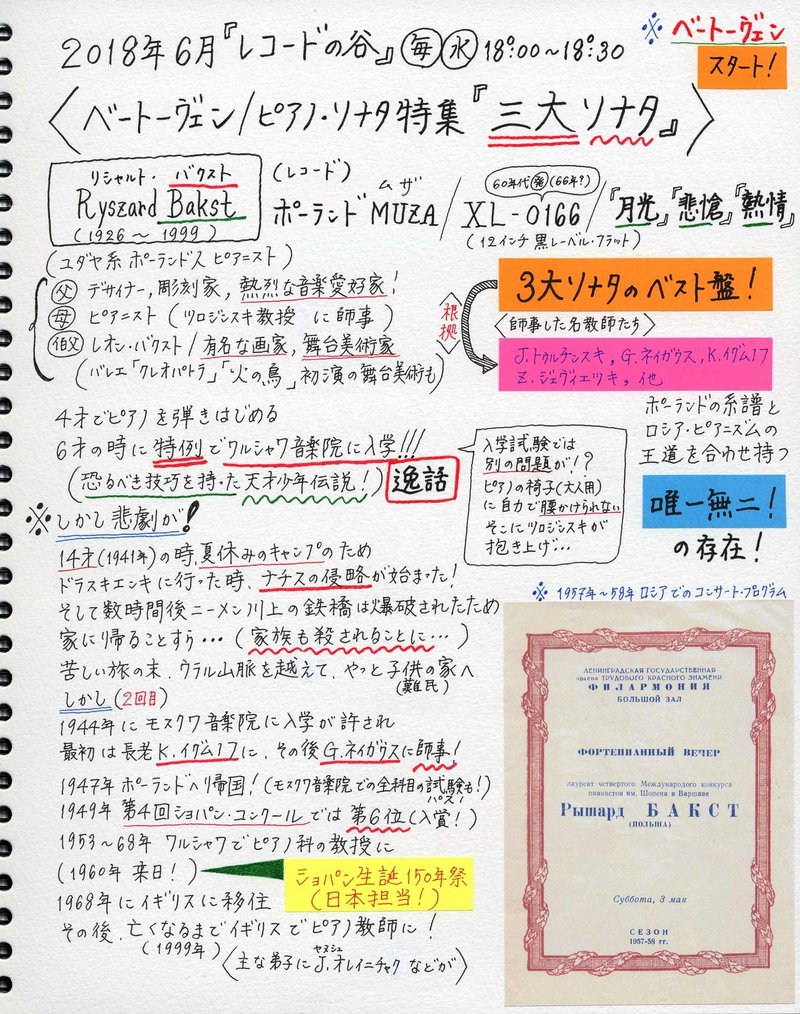 ※ ベートーヴェン
スタート!
2018年6月『レコードの谷』毎水 18:00〜18:30
〈ベートーヴェン/ピアノ・ソナタ特集『三大ソナタ』〉
リシャルト・バクスト
Ryszard Bakst
(1926〜1999)
(レコード)
ムザ
ポーランドMUZA/XL-0166/『月光』『悲愴』『熱情』
60年代発(66年?)
(12インチ黒レーベル・フラット)
(ユダヤ系ポーランド人ピアニスト)
父 デザイナー, 彫刻家, 熱烈な音楽愛好家!
母 ピアニスト(ツロジンスキ教授に師事)
伯父 レオン・バクスト/有名な画家, 舞台美術家
(バレエ「クレオパトラ」「火の鳥」初演の舞台美術も)
根拠
3大ソナタのベスト盤!
〈師事した名教師たち〉
J.トゥルチンスキ, G.ネイガウス, K.イグムノフ
Z.ジェヴィエツキ, 他
ポーランドの系譜と
ロシア・ピアニズムの
王道を合わせ持つ
唯一無二!
の存在!
4才でピアノを弾きはじめる
6才の時に特例でワルシャワ音楽院に入学!!!
(恐るべき技巧を持った天才少年伝説!)
逸話
入学試験では
別の問題が!?
ピアノの椅子(大人用)
に自力で腰かけられない
そこにツロジンスキが
抱き上げ…
※しかし悲劇が!
14才(1941年)の時, 夏休みのキャンプのため
ドラスキエンキに行った時, ナチスの侵略が始まった!
そして数時間後ニーメン川上の鉄橋は爆破されたため
家に帰ることすら…(家族も殺されることに…)
苦しい旅の末, ウラル山脈を越えて, やっと子供の家へ
(難民)
しかし(2回目)
1944年にモスクワ音楽院に入学が許され
最初は長老K.イグムノフに, その後G.ネイガウスに師事!
1947年 ポーランドへ帰国!(モスクワ音楽院での全科目の試験も!)
パス!
1949年 第4回ショパン・コンクールでは第6位(入賞!)
1953〜68年 ワルシャワでピアノ科の教授に
(1960年 来日!)
ショパン生誕150年祭
(日本担当!)
1968年にイギリスに移住
その後, 亡くなるまでイギリスでピアノ教師に!
(1999年)
ヤヌシュ
〈主な弟子にJ.オレイニチャクなどが〉
※ 1957年〜58年 ロシアでのコンサート・プログラム
ЛЕНИНГРАДСКАЯ ГОСУДАРСТВЕННАЯ
ордена ТРУДОВОГО КРАСНОГО ЗНАМЕНИ
ФИЛАРМОНИЯ
БОЛЬШОЙ ЗАЛ
ФОРТЕПИАННЫЙ ВЕЧЕР
лауреат четвертого Международного конкурса
пианистов им. Шопена в Варшаве
Рышард БАКСТ
(ПОЛЬША)
Суббота, 3 мая
СЕЗОН
1957-58 гг.